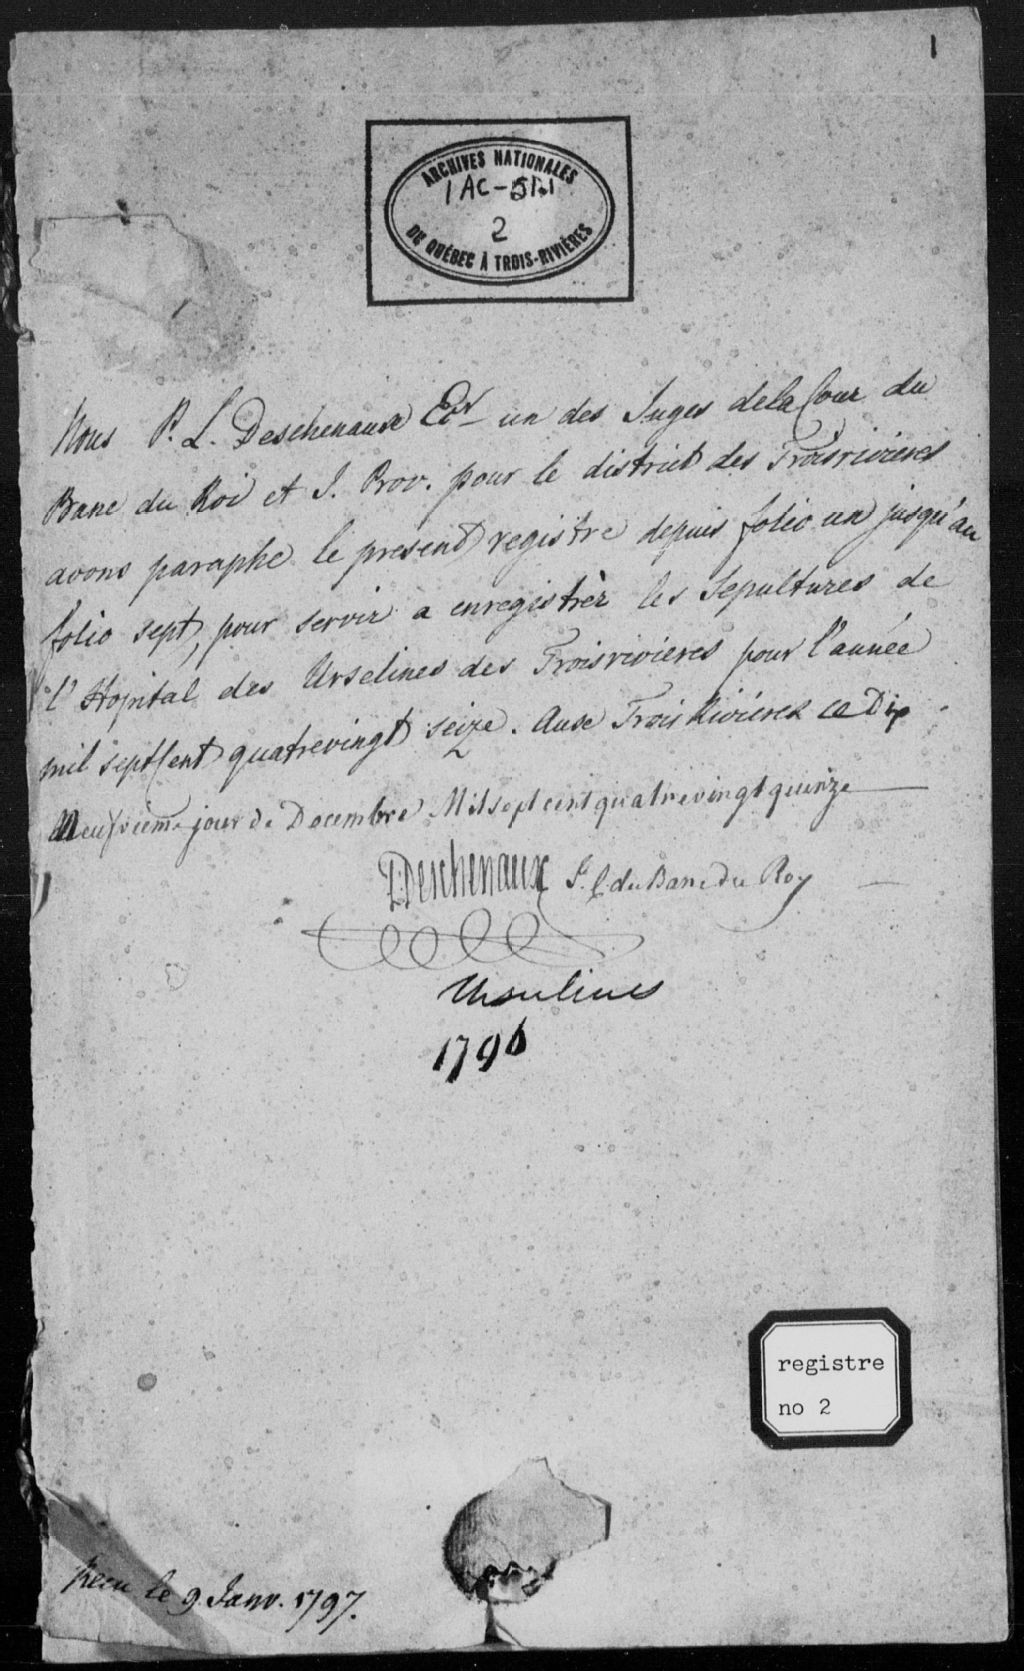 1
ARCHIVES NATIONALES
1 AC-
2
DE QUÉBEC À TROIS-RIVIÈRES
Nous P. L. Deschenaux Ecr un des Juges dela Cour du
Banc du Roi et J. Prov. pour le district des Troisrivieres
avons paraphe le present registre depuis folio un jusqu'au
folio sept, pour servir a enregistrèr les Sepultures de
l'Hopital des Urselines des Troisrivieres pour l'année
mil septCent quatrevingt seize. Auxe Trois Riviéres ce Dix
Neufvieme jour de Decembre Mil sept cent quatrevingt quinze
P: Deschenaux J. C. du Banc du Roy
Ursulines
1796
registre
no 2
Recu le 9. Janv. 1797.